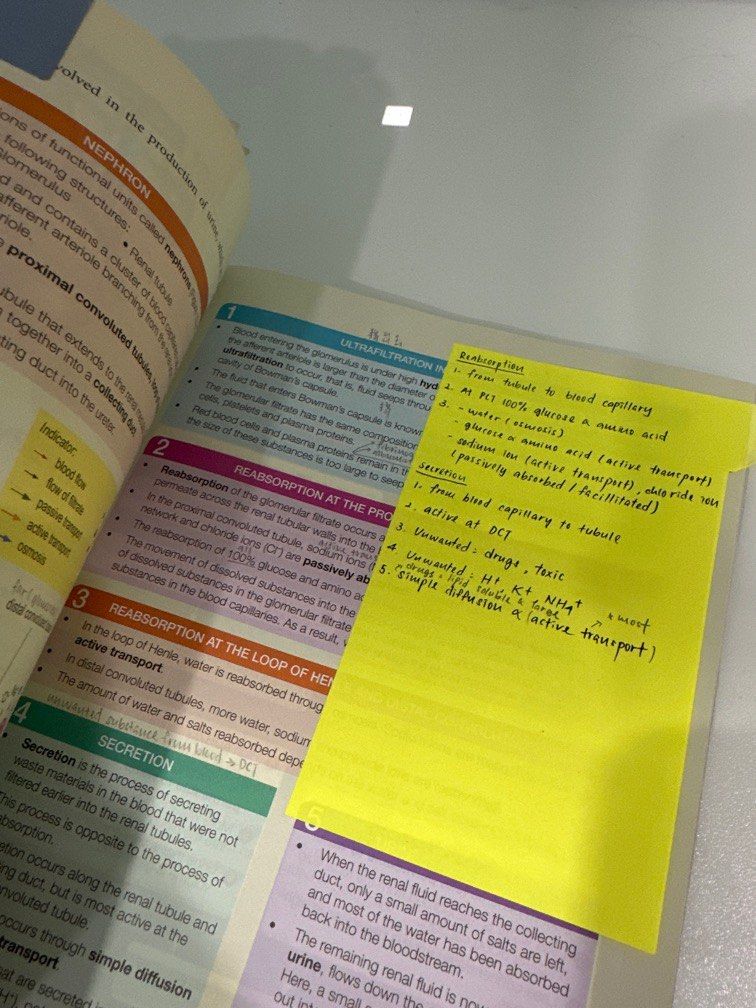 volved in the production of urine,
NEPHRON
ons of functional units called nephrons
following structures:
Glomerulus
• Renal tubule
d and contains a cluster of blood
afferent arteriole branching from the
riole.
proximal convoluted tubules,
bule that extends to the renal
together into a collecting duct
ting duct into the ureter.
Indicator:
blood flow
flow of filtrate
passive transport
active transport
osmosis
distal convoluted
1
ULTRAFILTRATION IN
• Blood entering the glomerulus is under high hyd
the afferent arteriole is larger than the diameter o
ultrafiltration to occur, that is, fluid seeps throu
cavity of Bowman's capsule.
• The fluid that enters Bowman's capsule is known
• The glomerular filtrate has the same composition
cells, platelets and plasma proteins.
• Red blood cells and plasma proteins remain in th
the size of these substances is too large to seep
2
REABSORPTION AT THE PRO
• Reabsorption of the glomerular filtrate occurs a
permeate across the renal tubular walls into the
• In the proximal convoluted tubule, sodium ions (
network and chloride ions (Cl⁻) are passively ab
• The reabsorption of 100% glucose and amino ac
• The movement of dissolved substances into the
of dissolved substances in the glomerular filtrate
substances in the blood capillaries. As a result,
3
REABSORPTION AT THE LOOP OF HEN
• In the loop of Henle, water is reabsorbed throug
active transport.
• In distal convoluted tubules, more water, sodium
• The amount of water and salts reabsorbed depe
unwanted substance from blood → DCT
4
SECRETION
• Secretion is the process of secreting
waste materials in the blood that were not
filtered earlier into the renal tubules.
This process is opposite to the process of
absorption.
etion occurs along the renal tubule and
ing duct, but is most active at the
nvoluted tubule.
occurs through simple diffusion
transport.
hat are secreted
Reabsorption
1. from tubule to blood capillary
2. At PCT 100% glucose & amino acid
3. - water (osmosis)
- glucose & amino acid (active transport)
- sodium ion (active transport), chloride ion
(passively absorbed / facillitated)
Secretion
1. from blood capillary to tubule
2. active at DCT
3. Unwanted: drugs, toxic
4. Unwanted: H+, K+, NH4+
* drugs = lipid soluble & large
* most
5. simple diffusion & (active transport)
5
• When the renal fluid reaches the collecting
duct, only a small amount of salts are left,
and most of the water has been absorbed
back into the bloodstream.
• The remaining renal fluid is now
urine, flows down the
Here, a small
out int